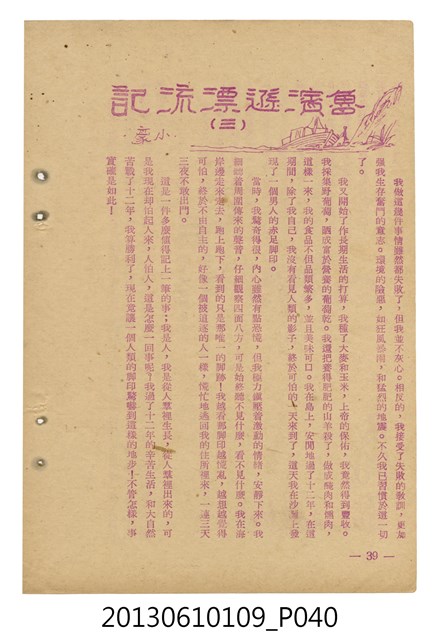 魯濱遜漂流記
(三)
小豪
我做這幾件事情雖然都失敗了，但我並不灰心。相反的，我接受了失敗的教訓，更加
強我生存奮鬥的意志。環境的險惡，如狂風暴雨，和猛烈的地震。不久我已習慣於這一切
了。
我又開始了作長期生活的打算，我種了大麥和玉米，上帝的保術，我竟然得到豐收。
我採集野葡萄，晒成富於營養的葡萄乾。我還把養得肥肥的山羊殺了，做成醃肉和燻肉，
這樣一來，我的食品不但品類繁多，並且美味可口。我在島上，安閒地過了十二年，在這
期間，除了我自己，我沒有看見人類的影子，終於可怕的一天來到了，這天我在沙灘上發
現了一個男人的赤足腳印。
當時，我驚奇得很，內心雖然有點恐慌，但我極力鎮壓着激動的情緒，安靜下來。我
細聽着周圍傳來的聲音，仔細觀察四面八方，可是始終聽不見什麼，看不見什麼。我在海
岸邊走來走去，跑上跑下，看到的只是那唯一的腳跡！我越看那腳印越慌亂，越想越覺得
可怕，終於不由自主的，好像一個被追逐的人一樣，慌忙地逃回我的住所裡來，一連三天
三夜不敢出門。
這是一件多麼值得記上一筆的事：我是人，我是從人羣裡生長，從人羣裡出來的，可
是我現在却怕起人來，人怕人，這是怎麼一回事呢？我過了十二年的辛苦生活，和大自然
苦戰了十二年，我算勝利了，現在竟讓一個人類的腳印驚嚇到這樣的地步！不管怎樣，事
實確是如此！
— 39 —
20130610109_P040